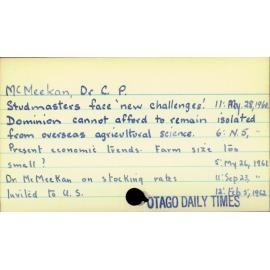 McMeekan, Dr C. P.
Studmasters face 'new challenges'. 11: May 28, 1960
Dominion cannot afford to remain isolated
from overseas agricultural science. 6: N.5, "
Present economic trends. Farm size too
small? 5: My 26, 1961
Dr. McMeekan on stocking rates 11: Sep 23, "
Invited to U.S. 12: Feb 5, 1962
OTAGO DAILY TIMES